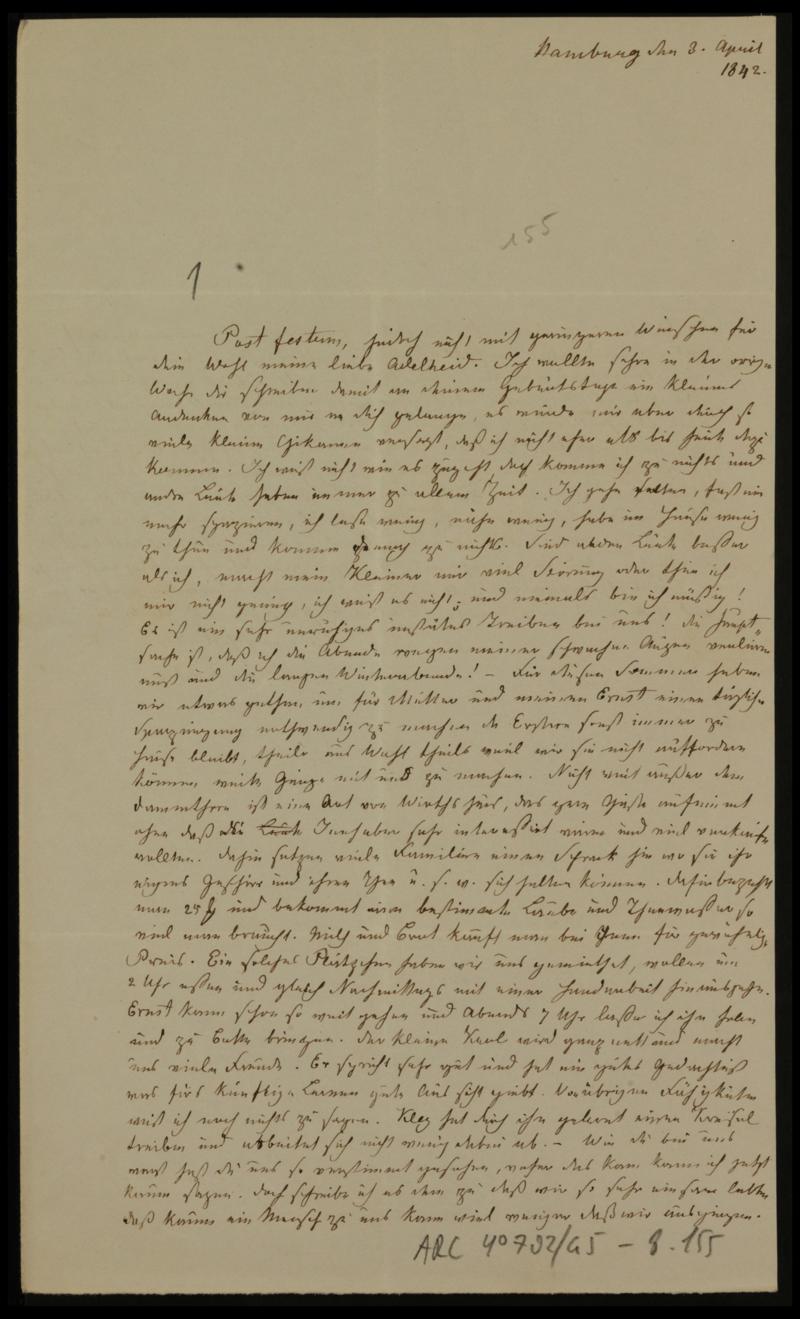 Hamburg den 3. April
1842.
155
1
Post festum, jedoch nicht mit geringeren Wünschen für
dein Wohl meine liebe Adelheid. Ich wollte schon in der vorigen
Woche dir schreiben damit an deinem Geburtstage ein kleines
Andenken von mir an dich gelange, es wurde mir aber durch so
viele kleine Chikanen versagt, daß ich nicht eher als bis heute dazu
komme. Ich weiß nicht wie es zugeht doch komme ich zu nichts und
andre Leute haben immer zu allem Zeit. Ich gehe selten, fast nie
mehr spazieren, ich lese wenig, nähe wenig, habe im Hause wenig
zu thun und komme dennoch zu nichts. Sind andre Leute besser
als ich, macht mein Kleiner mir viel Störung oder thue ich
mir nicht genug, ich weiß es nicht; und niemals bin ich müßig!
Es ist ein sehr unruhiges unstätes Treiben bei uns! die Haupt-
sache ist, daß ich die Abende wegen meiner schwachen Augen verlieren
muß und die langen Winterabende! – Für diesen Sommer haben
wir etwas gethan um für Mutter und meinen Ernst einen täglichen
Spaziergang nothwendig zu machen da Erstere sonst immer zu
Hause bleibt, theils aus Wahl theils weil wir sie nicht auffordern
können weite Gänge mit uns zu machen. Nicht weit außer dem
Dammthore ist eine Art von Wirthshaus, das gern Gäste aufnimmt
ohne daß die Leute Inhaber sehr interessirt wären und viel verkaufen
wollten. Dahin setzen viele Familien einen Schrank hin wo sie ihr
eigens Geschirr und ihren Thee u. s. w. sich halten können. Dafür bezahlt
man 25 und bekommt eine bestimmte Laube und Theewasser so
viel man braucht. Milch und Brot kauft man bei ihnen für gewöhnlichen
Preis. Ein solches Plätzchen haben wir uns gemiethet, wollen um
2 Uhr essen und gleich Nachmittags mit einer Handarbeit hinausgehen.
Ernst kann schon so weit gehen und Abends 7 Uhr lasse ich ihn holen
und zu Bette bringen. Der kleine Kerl wird ganz nett und macht
uns viele Freude. Er spricht sehr gut und hat ein gutes Gedächtniß
was fürs künftige Lernen gute Aussicht giebt. Von übrigen Fähigkeiten
weiß ich noch nichts zu sagen. Klez hat durch ihn gelernt einen Kreisel
treiben und arbeitet sich nicht wenig dabei ab. – Wie du bei uns
warst hast du uns so verstimmt gesehen, woher das kam kann ich jetzt
kaum sagen. Doch schreibe ich es dem zu daß wir so sehr einsam lebten
daß kaum ein Mensch zu uns kam viel weniger daß wir ausgingen.
ARC 4° 792/G5 – 8.155